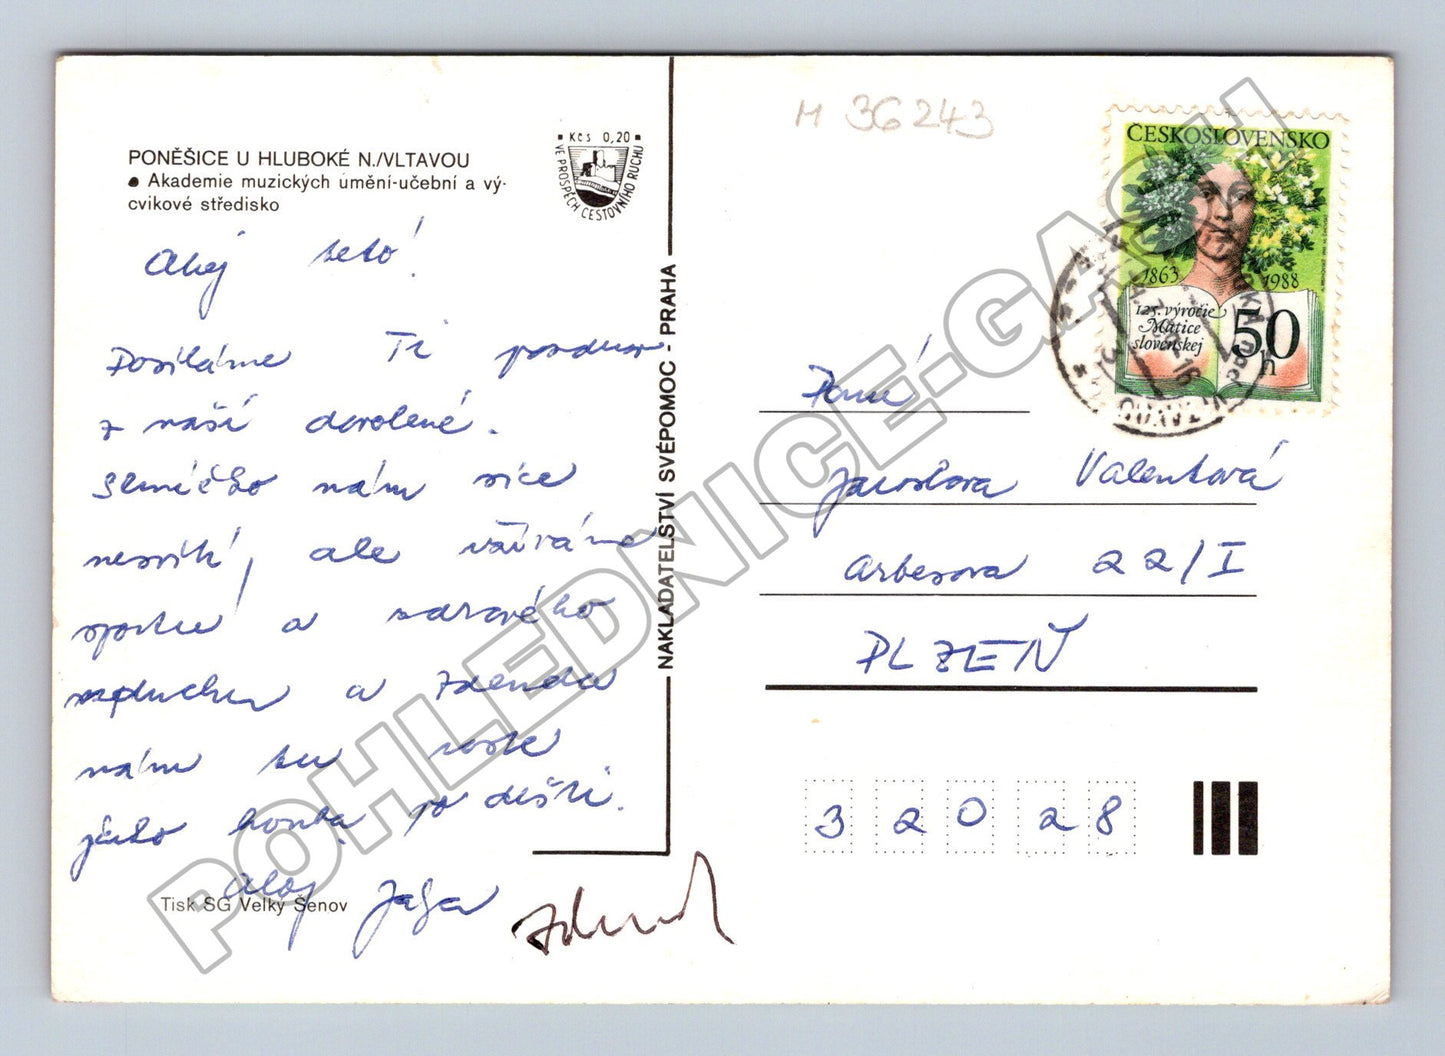 M 36243
PONĚŠICE U HLUBOKÉ N./VLTAVOU
• Akademie muzických umění-učební a vý-
cvikové středisko
Kčs 0,20
VE PROSPĚCH CESTOVNÍHO RUCHU
Ahoj teto!
Posíláme Ti pozdrav
z naší dovolené.
Sluníčko nám sice
nesvítí, ale užíváme
sportu a zdravého
vzduchu a Zdenda
nám tu roste
jako houba po dešti.
Ahoj Jája
Zdeněk
Tisk SG Velký Šenov
NAKLADATELSTVÍ SVÉPOMOC - PRAHA
ČESKOSLOVENSKO
1863 1988
125. výročie
Matice
slovenskej
50 h
Paní
Jaroslava Valentová
Arbesova 22/I
PLZEŇ
32028
POHLEDNICE-GASH